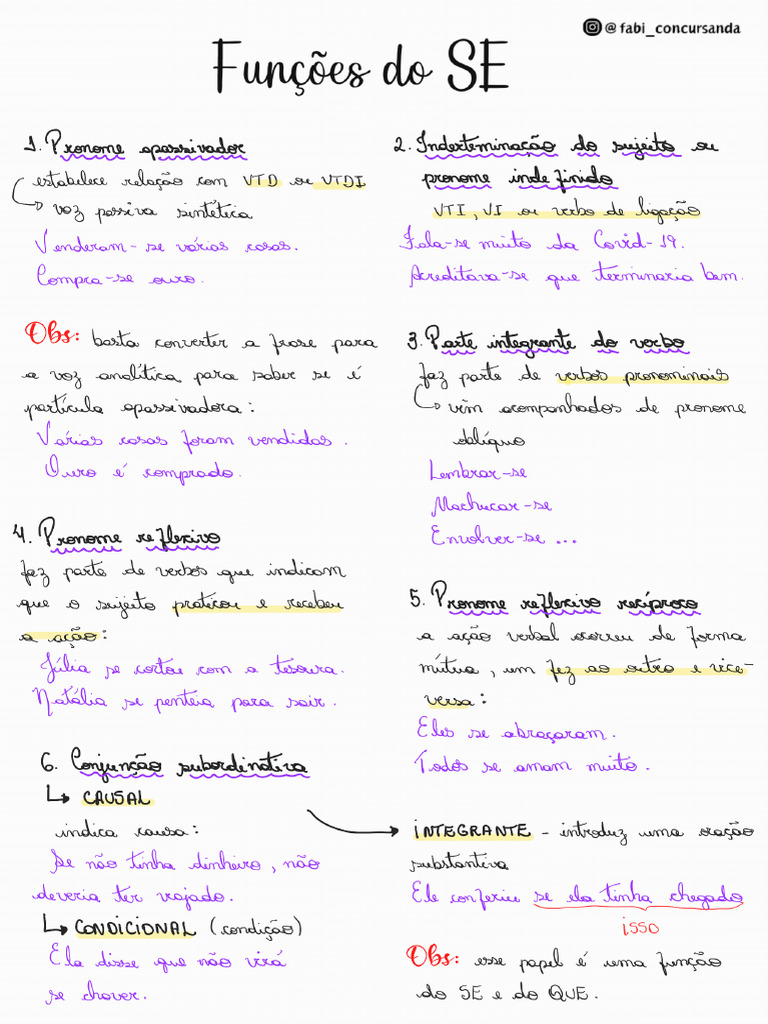 @fabi_concursanda
Funções do SE
1. Pronome apassivador
estabelece relação com VTD ou VTDI
voz passiva sintética
Venderam-se várias casas.
Compra-se ouro.
Obs: basta converter a frase para
a voz analítica para saber se é
partícula apassivadora:
Várias casas foram vendidas.
Ouro é comprado.
2. Indeterminação do sujeito ou
pronome indefinido
VTI, VI ou verbo de ligação
Fala-se muito da Covid-19.
Acreditava-se que terminaria bem.
3. Parte integrante do verbo
faz parte de verbos pronominais
vêm acompanhados de pronome
oblíquo
Lembrar-se
Machucar-se
Envolver-se ...
4. Pronome reflexivo
faz parte de verbos que indicam
que o sujeito praticou e recebeu
a ação:
Júlia se cortou com a tesoura.
Natália se penteia para sair.
5. Pronome reflexivo recíproco
a ação verbal ocorreu de forma
mútua, um fez ao outro e vice-
versa:
Eles se abraçaram.
Todos se amam muito.
6. Conjunção subordinativa
CAUSAL
indica causa:
Se não tinha dinheiro, não
deveria ter viajado.
CONDICIONAL (condição)
Ela disse que não virá
se chover.
INTEGRANTE - introduz uma oração
substantiva
Ele conferiu se ela tinha chegado
ISSO
Obs: esse papel é uma função
do SE e do QUE.